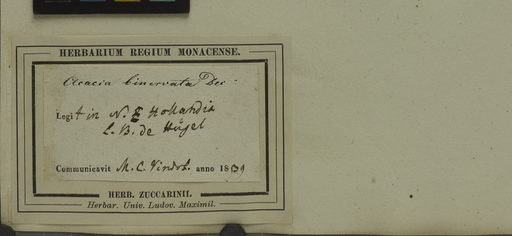 HERBARIUM REGIUM MONACENSE.
Acacia binervata Dec
Legit in N. E Hollandia
L. B. de Hügel
Communicavit M. C. Vindob. anno 1839
HERB. ZUCCARINII.
Herbar. Univ. Ludov. Maximil.